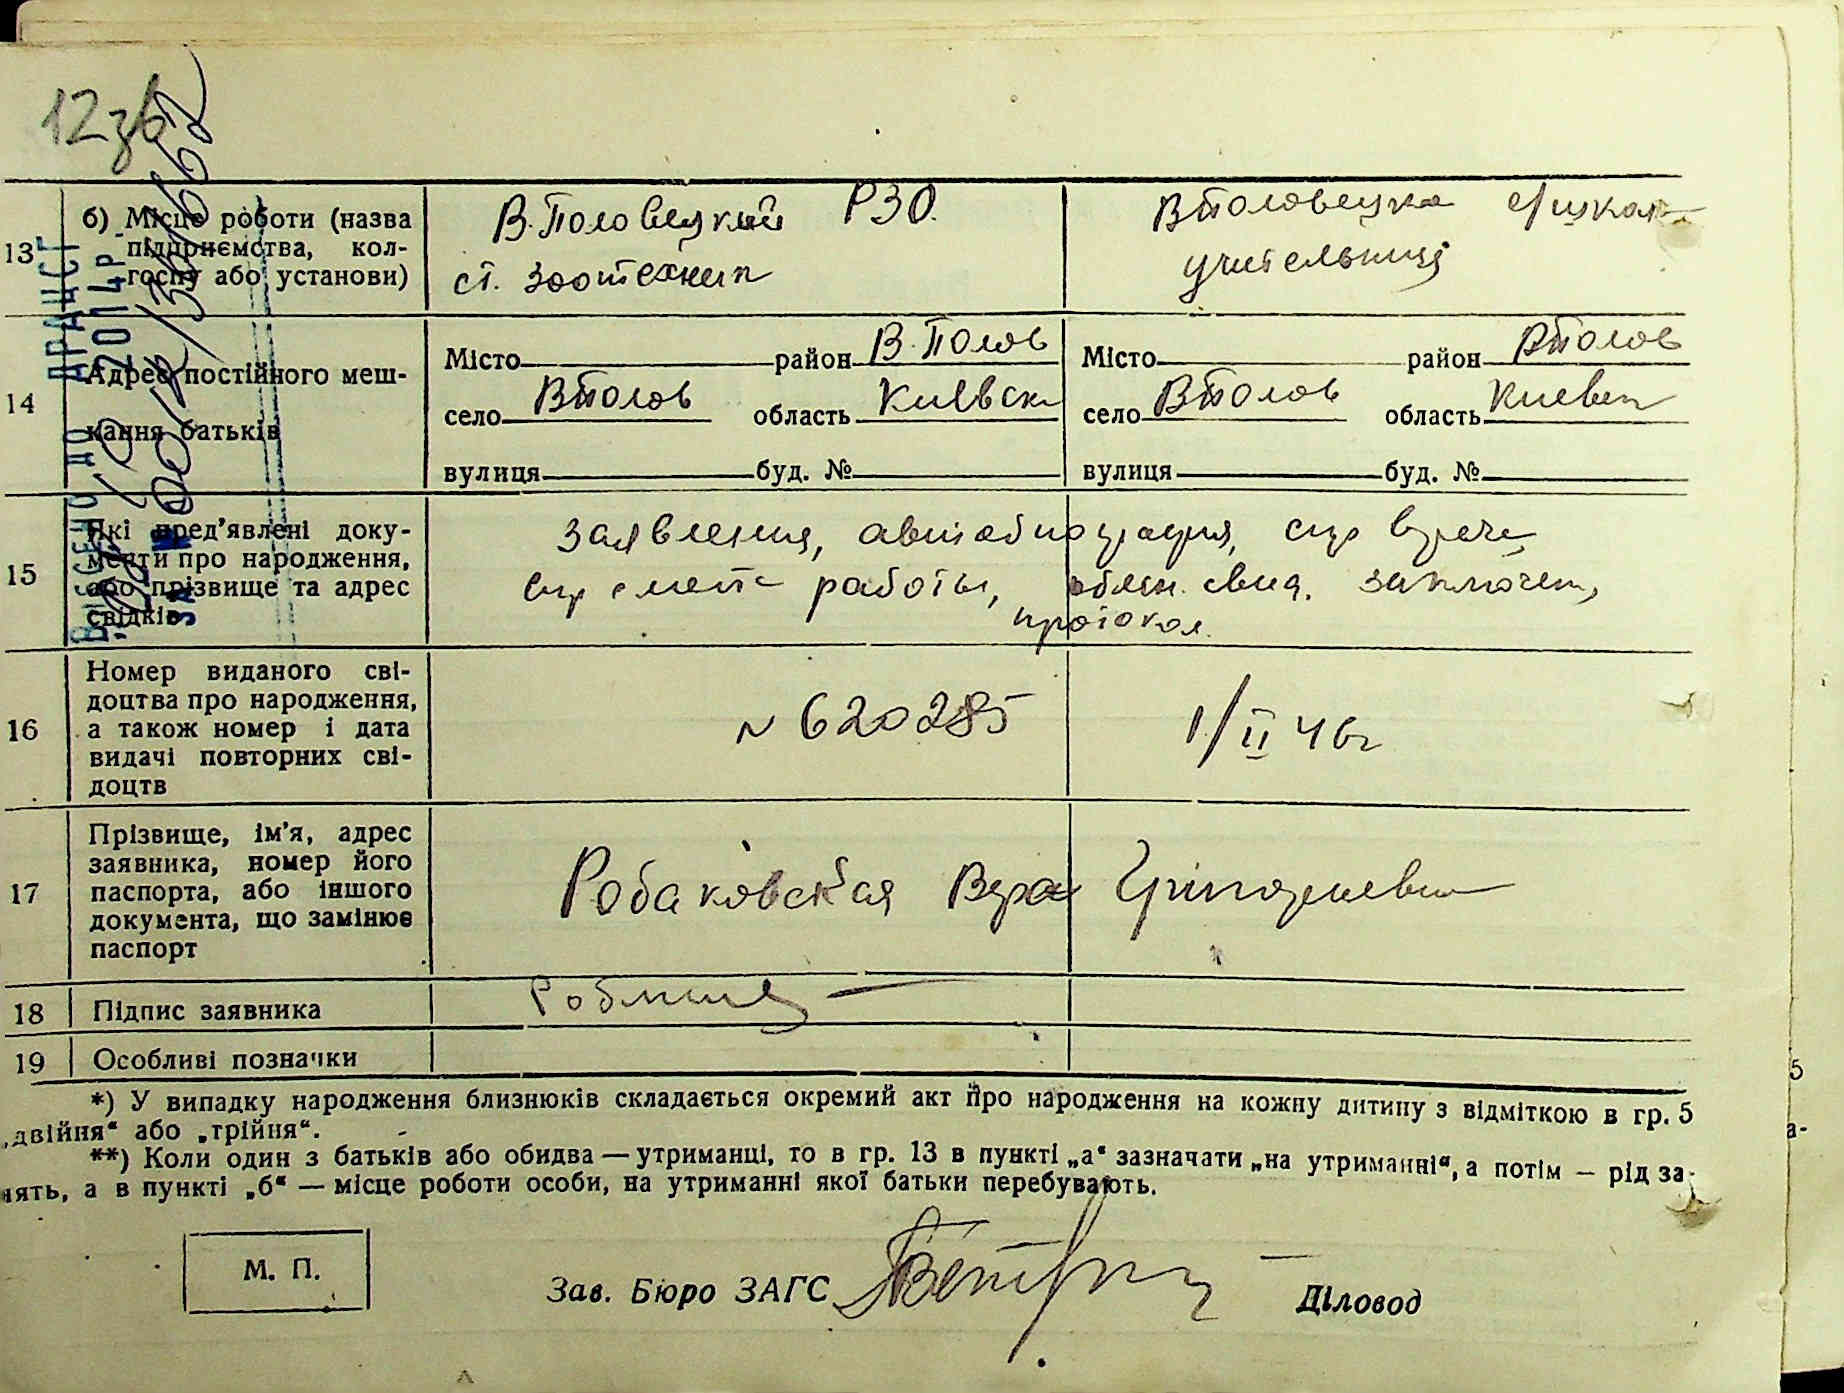 12зв
13 б) Місце роботи (назва підприємства, колгоспу або установи)
В. Половецкий РЗО.
ст. зоотехник
ВПоловецка
учительниця
14 Адрес постійного мешкання батьків
Місто район В. Полов
село ВПолов область Київск
вулиця буд. №
Місто район ВПолов
село ВПолов область
вулиця буд. №
15 Які пред'явлені документи про народження, або прізвище та адрес свідків
заявления, автобиография,
работы, заключен,
протокол.
16 Номер виданого свідоцтва про народження, а також номер і дата видачі повторних свідоцтв
N 620285 1/II 46г
17 Прізвище, ім'я, адрес заявника, номер його паспорта, або іншого документа, що замінює паспорт
Робаковская Вера
18 Підпис заявника
19 Особливі позначки
*) У випадку народження близнюків складається окремий акт про народження на кожну дитину з відміткою в гр. 5
„двійня“ або „трійня“.
**) Коли один з батьків або обидва — утриманці, то в гр. 13 в пункті „а“ зазначати „на утриманні“, а потім — рід за-
нять, а в пункті „б“ — місце роботи особи, на утриманні якої батьки перебувають.
М. П.
Зав. Бюро ЗАГС Діловод
ВНЕСЕНО ДО ДРАЦСГ
2014р